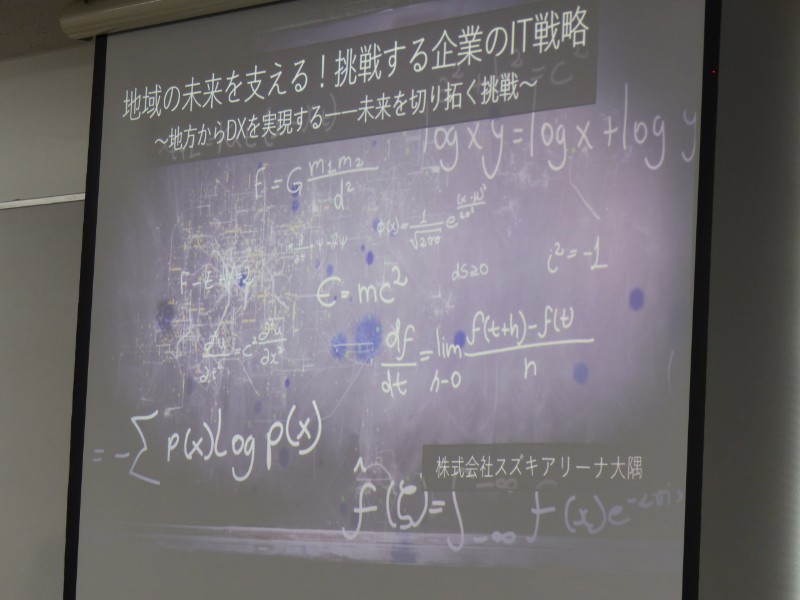 地域の未来を支える！挑戦する企業のIT戦略
～地方からDXを実現する――未来を切り拓く挑戦～
log xy = log x + log y
F = G m₁m₂ / d²
i² = -1
dS≥0
E = mc²
df/dt = lim h→0 f(t+h) - f(t) / h
= -∑ p(x) log p(x)
株式会社スズキアリーナ大隅